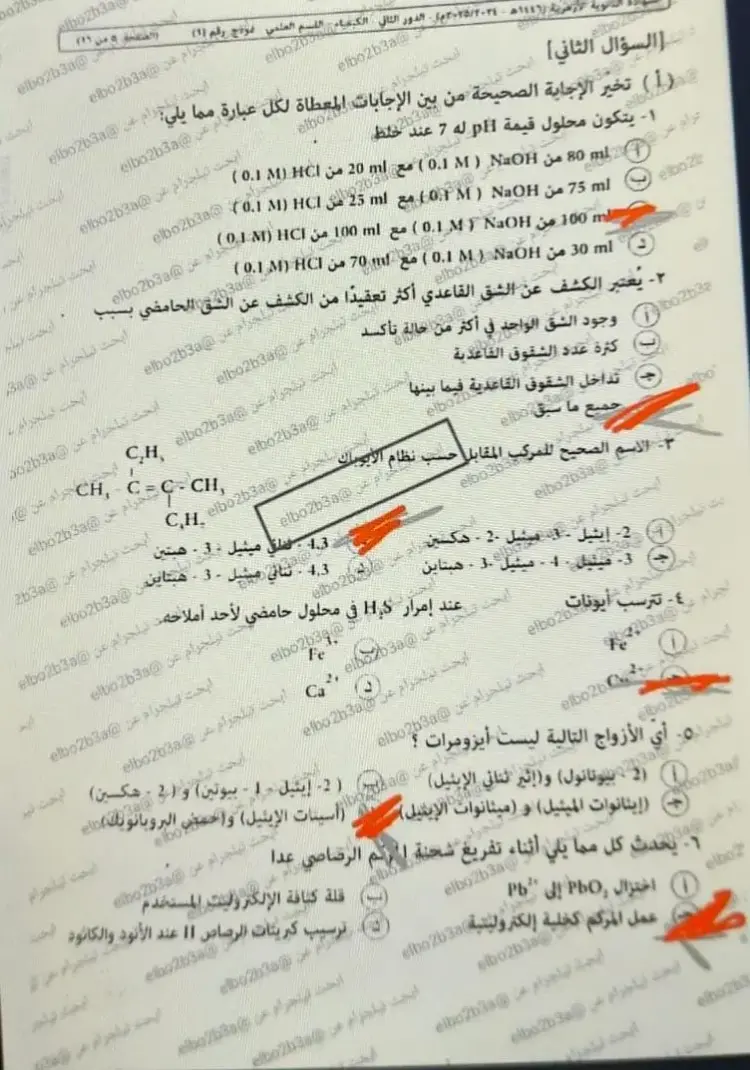 شهادة الثانوية الأزهرية (١٤٤٦هـ - ٢٠٢٤/٢٠٢٥م) - الدور الثاني - الكيمياء - القسم العلمي - نموذج رقم (٦) (الصفحة ٥ من ١٦)
[السؤال الثاني]
( أ ) تخيّر الإجابة الصحيحة من بين الإجابات المعطاة لكل عبارة مما يلي:
١- يتكون محلول قيمة pH له 7 عند خلط
أ 80 ml من NaOH ( 0.1 M ) مع 20 ml من HCl (0.1 M )
ب 75 ml من NaOH ( 0.1 M ) مع 25 ml من HCl (0.1 M )
100 ml من NaOH ( 0.1 M ) مع 100 ml من HCl (0.1 M )
د 30 ml من NaOH ( 0.1 M ) مع 70 ml من HCl (0.1 M )
٢- يُعتبر الكشف عن الشق القاعدي أكثر تعقيدًا من الكشف عن الشق الحامضي بسبب
أ وجود الشق الواحد في أكثر من حالة تأكسد
ب كثرة عدد الشقوق القاعدية
جـ تداخل الشقوق القاعدية فيما بينها
جميع ما سبق
٣- الاسم الصحيح للمركب المقابل حسب نظام الأيوباك
C₂H₅
CH₃ - C = C - CH₃
C₃H₇
أ 2- إيثيل - 3- ميثيل -2 - هكسين
4,3 - ثنائي ميثيل - 3 - هبتين
جـ 3- ميثيل - 4 - ميثيل -3 - هبتاين
د 4,3 - ثنائي ميثيل - 3 - هبتاين
٤- تترسب أيونات عند إمرار H₂S في محلول حامضي لأحد أملاحه.
أ Fe²⁺
ب Fe³⁺
جـ Cu²⁺
د Ca²⁺
٥- أيّ الأزواج التالية ليست أيزومرات ؟
أ (2 - بيوتانول) و(إثير ثنائي الإيثيل)
ب (2- إيثيل - 1 - بيوتين) و ( 2 - هكسين)
جـ (إيثانوات الميثيل) و (ميثانوات الإيثيل)
(أسيتات الإيثيل) و(حمض البروبانويك)
٦- يحدث كل مما يلي أثناء تفريغ شحنة المركم الرصاصي عدا
أ اختزال PbO₂ إلى Pb²⁺
ب قلة كثافة الإلكتروليت المستخدم
جـ عمل المركم كخلية إلكتروليتية
د ترسيب كبريتات الرصاص II عند الأنود والكاثود
ابحث تيلجرام عن @elbo2b3a